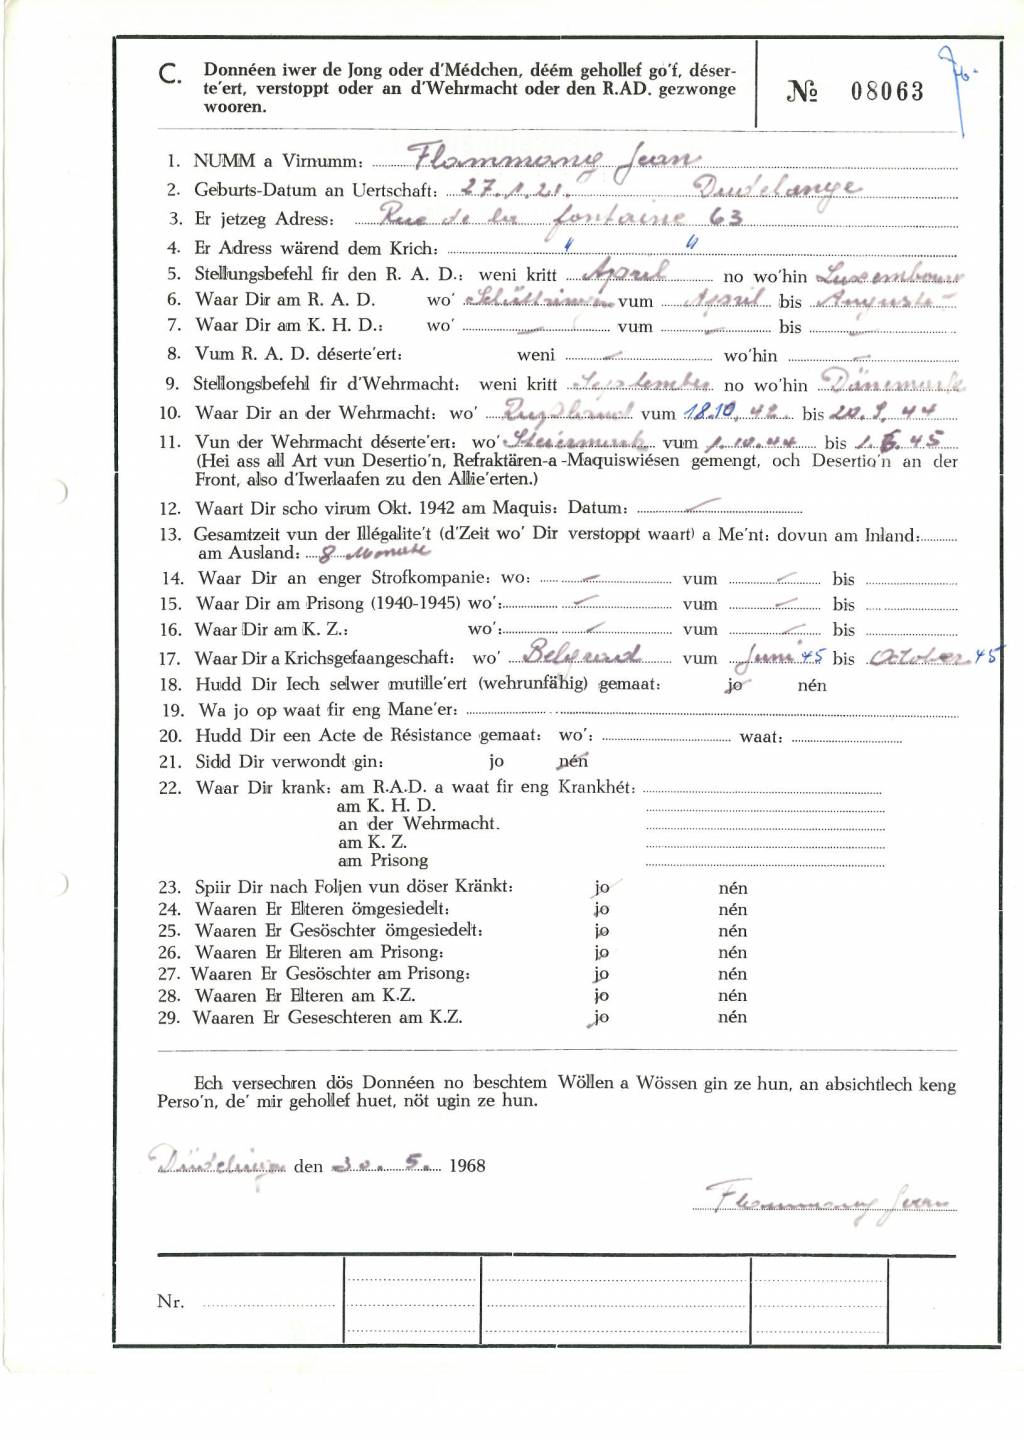 C. Donnéen iwer de Jong oder d'Médchen, déém gehollef go'f, déser-
te'ert, verstoppt oder an d'Wehrmacht oder den R.AD. gezwonge
wooren.
№ 08063
1. NUMM a Virnumm: Flammang Jean
2. Geburts-Datum an Uertschaft: 27.1.21. Dudelange
3. Er jetzeg Adress: Rue de la fontaine 63
4. Er Adress wärend dem Krich: " "
5. Stellungsbefehl fir den R. A. D.: weni kritt April no wo'hin Luxembourg
6. Waar Dir am R. A. D. wo' Schüttringen vum April bis Auguste
7. Waar Dir am K. H. D.: wo' — vum — bis —
8. Vum R. A. D. déserte'ert: weni — wo'hin —
9. Stellongsbefehl fir d'Wehrmacht: weni kritt September no wo'hin Dänemark
10. Waar Dir an der Wehrmacht: wo' Rußland vum 18.10. 42. bis 20.9.44
11. Vun der Wehrmacht déserte'ert: wo' Steiermark vum 1.10.44 bis 1.6.45
(Hei ass all Art vun Desertio'n, Refraktären-a -Maquiswiésen gemengt, och Desertio'n an der
Front, also d'Iwerlaafen zu den Allie'erten.)
12. Waart Dir scho virum Okt. 1942 am Maquis: Datum: —
13. Gesamtzeit vun der Illégalite't (d'Zeit wo' Dir verstoppt waart) a Me'nt: dovun am Inland:
am Ausland: 8 Monate
14. Waar Dir an enger Strofkompanie: wo: — vum — bis
15. Waar Dir am Prisong (1940-1945) wo': — vum — bis
16. Waar Dir am K. Z.: wo': — vum — bis
17. Waar Dir a Krichsgefaangeschaft: wo' Belgrad vum Juni 45 bis October 45
18. Hudd Dir Iech selwer mutille'ert (wehrunfähig) gemaat: jo nén
19. Wa jo op waat fir eng Mane'er:
20. Hudd Dir een Acte de Résistance gemaat: wo': waat:
21. Sidd Dir verwondt gin: jo nén
22. Waar Dir krank: am R.A.D. a waat fir eng Krankhét:
am K. H. D.
an der Wehrmacht.
am K. Z.
am Prisong
23. Spiir Dir nach Foljen vun döser Kränkt: jo nén
24. Waaren Er Elteren ömgesiedelt: jo nén
25. Waaren Er Gesöschter ömgesiedelt: jo nén
26. Waaren Er Elteren am Prisong: jo nén
27. Waaren Er Gesöschter am Prisong: jo nén
28. Waaren Er Elteren am K.Z. jo nén
29. Waaren Er Geseschteren am K.Z. jo nén
Ech versechren dös Donnéen no beschtem Wöllen a Wössen gin ze hun, an absichtlech keng
Perso'n, de' mir gehollef huet, nöt ugin ze hun.
Düdelingen den 30. 5. 1968
Flammang Jean
Nr.